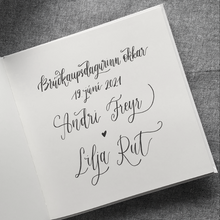 Brúðkaupsdagurinn okkar
19. júní 2021
Andri Freyr
Lilja Rut